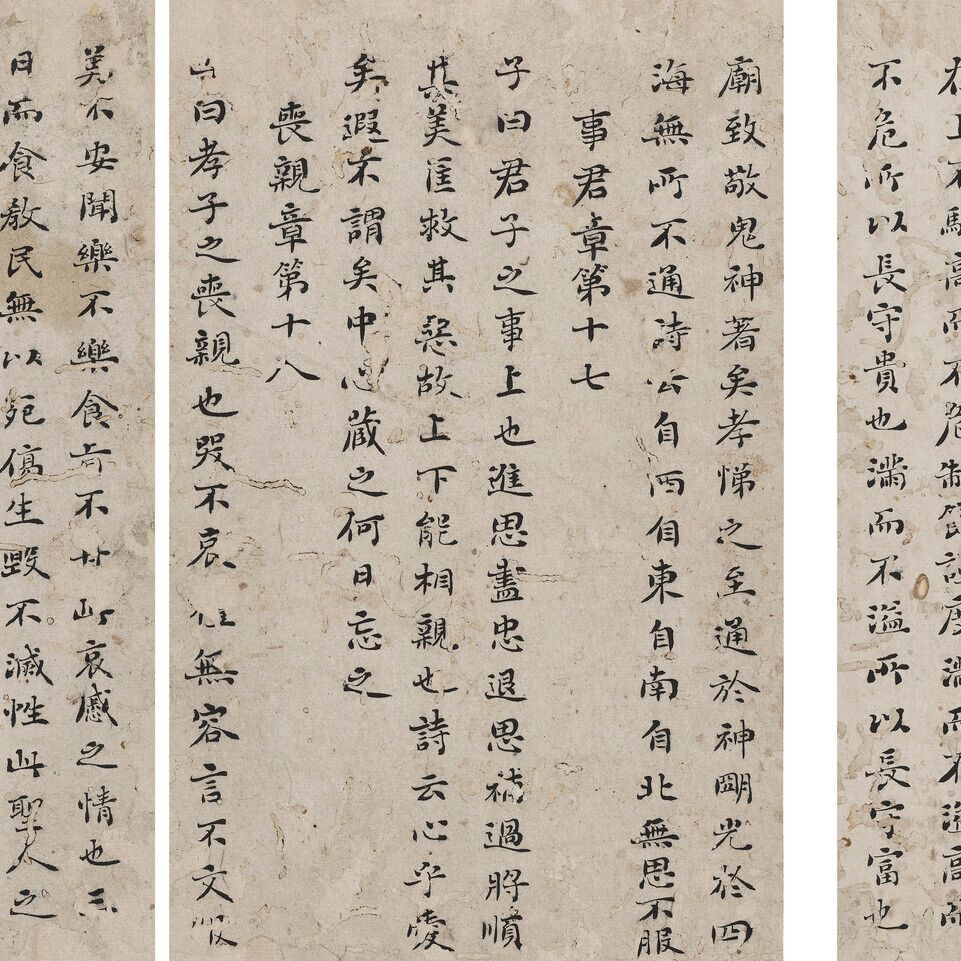 在上不驕高而不危制節謹度滿而不溢高而
不危所以長守貴也滿而不溢所以長守富也
廟致敬鬼神著矣孝悌之至通於神明光於四
海無所不通詩云自西自東自南自北無思不服
事君章第十七
子曰君子之事上也進思盡忠退思補過將順
其美匡救其惡故上下能相親也詩云心乎愛
矣遐不謂矣中心藏之何日忘之
喪親章第十八
子曰孝子之喪親也哭不哀無容言不文服
美不安聞樂不樂食旨不甘此哀慼之情也三
日而食教民無以死傷生毀不滅性此聖人之